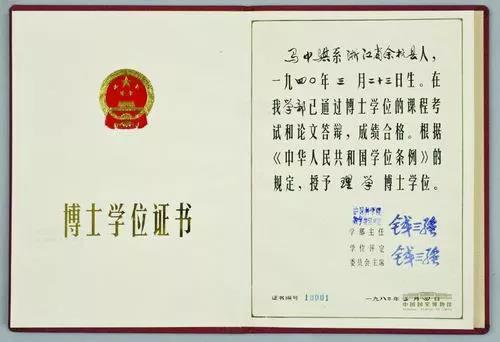 博士学位证书
马中骐系浙江省余杭县人，
一九四〇年三月二十三日生。在
我学部已通过博士学位的课程考
试和论文答辩，成绩合格。根据
《中华人民共和国学位条例》的
规定，授予理学博士学位。
学部主任 钱三强
学位评定
委员会主席 钱三强
证书编号 10001
一九八年月日
中国国家博物馆